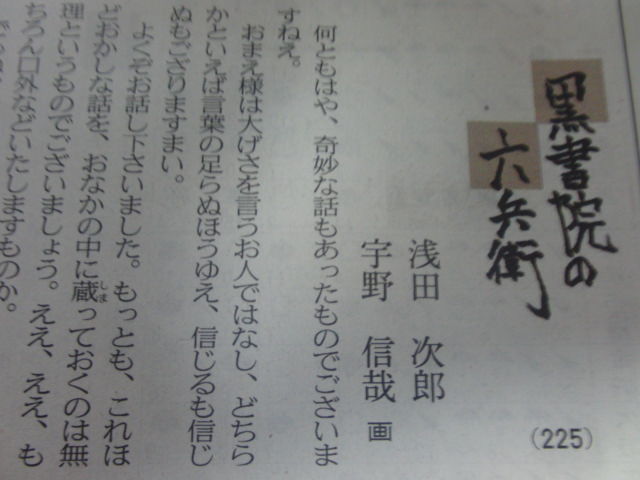 黒書院の
六兵衛
浅田 次郎
宇野 信哉 画
(225)
何ともはや、奇妙な話もあったものでございま
すねえ。
おまえ様は大げさを言うお人ではなし、どちら
かといえば言葉の足らぬほうゆえ、信じるも信じ
ぬもござりますまい。
よくぞお話し下さいました。もっとも、これほ
どおかしな話を、おなかの中に蔵(しま)っておくのは無
理というものでございましょう。ええ、ええ、も
ちろん口外などいたしますものか。